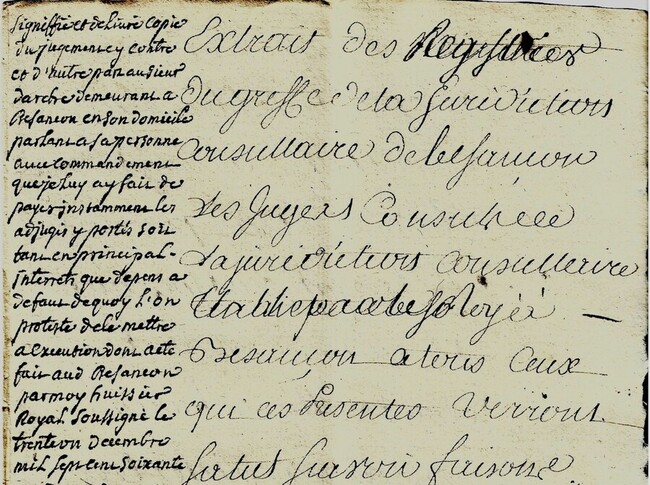 Signiffié et delivré copie
du jugement cy contre
et d'autre part au sieur
darche demeurant a
Besancon en son domicile
parlant a sa personne
avec commandement
que je luy ay fait de
payer instamment les
adjugés y portés soit
tant en principal-
interrets que depens a
defaut de quoy l'on
proteste de le mettre
a execution dont acte
fait aud Besancon
par moy huissier
Royal soussigné le
trente un decembre
mil sept cent soixante
Extrait des Registres
du greffe de la Juridiction
Consullaire de besancon
Les Juges Consuls de
La juridiction consullaire
Etablie par le Roy a
Besancon a tous ceux
qui ces presentes verront
salut scavoir faisons